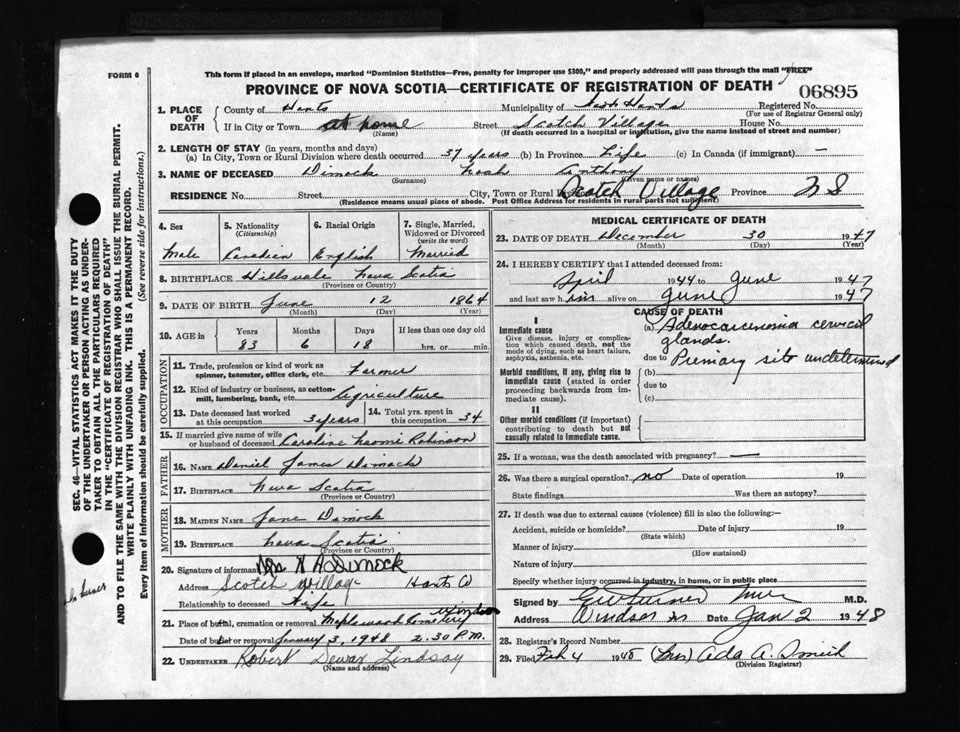 FORM 6
This form if placed in an envelope, marked "Dominion Statistics—Free, penalty for improper use $300," and properly addressed will pass through the mail "FREE"
PROVINCE OF NOVA SCOTIA—CERTIFICATE OF REGISTRATION OF DEATH
06895
1. PLACE OF DEATH County of Hants Municipality of Registered No.
(For use of Registrar General only)
If in City or Town at home Street Scotch Village House No.
(Name) (If death occurred in a hospital or institution, give the name instead of street and number)
2. LENGTH OF STAY (in years, months and days)
(a) In City, Town or Rural Division where death occurred 37 years (b) In Province Life (c) In Canada (if immigrant) —
3. NAME OF DECEASED Dimock Noah Anthony
(Surname) (Given name or names)
RESIDENCE No. Street City, Town or Rural Scotch Village Province N S
(Residence means usual place of abode. Post Office Address for residents in rural parts not sufficient)
4. Sex
Male
5. Nationality
(Citizenship)
Canadian
6. Racial Origin
English
7. Single, Married, Widowed or Divorced
(write the word)
Married
8. BIRTHPLACE Hillsvale Nova Scotia
(Province or Country)
9. DATE OF BIRTH June 12 1864
(Month) (Day) (Year)
10. AGE in Years Months Days If less than one day old
83 6 18 hrs. or min.
OCCUPATION
11. Trade, profession or kind of work as spinner, teamster, office clerk, etc. Farmer
12. Kind of industry or business, as cotton-mill, lumbering, bank, etc. Agriculture
13. Date deceased last worked at this occupation 3 years 14. Total yrs. spent in this occupation 34
15. If married give name of wife or husband of deceased Caroline Naomi Robinson
FATHER
16. NAME Daniel James Dimock
17. BIRTHPLACE Nova Scotia
(Province or Country)
MOTHER
18. MAIDEN NAME Jane Dimock
19. BIRTHPLACE Nova Scotia
(Province or Country)
20. Signature of informant Mrs N A Dimock
Address Scotch Village Hants Co
Relationship to deceased Wife
21. Place of burial, cremation or removal Maplewood Cemetery Windsor
Date of burial or removal January 3, 1948 2.30 P.M.
22. UNDERTAKER Robert Dewar Lindsay
(Name and address)
MEDICAL CERTIFICATE OF DEATH
23. DATE OF DEATH December 30 1947
(Month) (Day) (Year)
24. I HEREBY CERTIFY that I attended deceased from:
April 1944 to June 1947
and last saw him alive on June 1947
CAUSE OF DEATH
I
Immediate cause
Give disease, injury or complication which caused death, not the mode of dying, such as heart failure, asphyxia, asthenia, etc.
(a) Adenocarcinoma cervical glands.
due to Primary site undetermined
Morbid conditions, if any, giving rise to immediate cause (stated in order proceeding backwards from immediate cause).
(b)
due to
(c)
II
Other morbid conditions (if important) contributing to death but not causally related to immediate cause.
25. If a woman, was the death associated with pregnancy? —
26. Was there a surgical operation? no Date of operation 19
State findings Was there an autopsy?
27. If death was due to external causes (violence) fill in also the following:—
Accident, suicide or homicide? Date of injury 19
(State which)
Manner of injury
(How sustained)
Nature of injury
Specify whether injury occurred in industry, in home, or in public place
Signed by M.D.
Address Windsor NS Date Jan 2 1948
28. Registrar's Record Number
29. Filed Feb 4 1948 (Mrs) Ada A. Smith
(Division Registrar)
SEC. 46—VITAL STATISTICS ACT MAKES IT THE DUTY OF THE UNDERTAKER OR PERSON ACTING AS UNDERTAKER TO OBTAIN ALL THE PARTICULARS REQUIRED IN THE "CERTIFICATE OF REGISTRATION OF DEATH"
AND TO FILE THE SAME WITH THE DIVISION REGISTRAR WHO SHALL ISSUE THE BURIAL PERMIT.
WRITE PLAINLY WITH UNFADING INK. THIS IS A PERMANENT RECORD.
Every item of information should be carefully supplied. (See reverse side for instructions.)